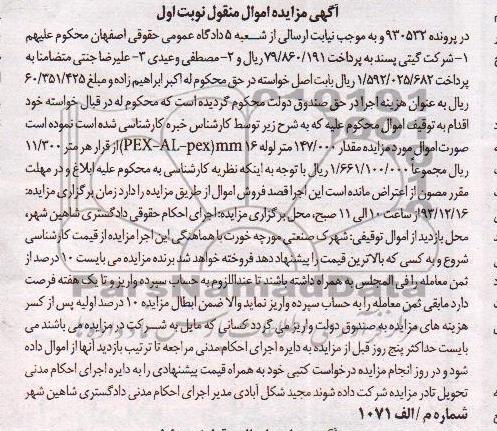 آگهی مزایده اموال منقول نوبت اول
در پرونده ۹۳۰۵۳۲ و به موجب نیابت ارسالی از شعبه ۵ دادگاه عمومی حقوقی اصفهان محکوم علیهم
۱- شرکت گیتی پسند به پرداخت ۷۹/۸۶۰/۱۹۱ ریال و ۲- مصطفی وعیدی ۳- علیرضا جنتی متضامنا به
پرداخت ۱/۵۹۲/۰۲۵/۶۸۲ ریال بابت اصل خواسته در حق محکوم له اکبر ابراهیم زاده و مبلغ ۶۰/۳۵۱/۴۲۵
ریال به عنوان هزینه اجرا در حق صندوق دولت محکوم گردیده است که محکوم له در قبال خواسته خود
اقدام به توقیف اموال محکوم علیه که به شرح زیر توسط کارشناس خبره کارشناسی شده است نموده است
صورت اموال مورد مزایده مقدار ۱۴۷/۰۰۰ متر لوله ۱۶ PEX-AL-pex)mm) از قرار هر متر ۱۱/۳۰۰
ریال مجموعا ۱/۶۶۱/۱۰۰/۰۰۰ ریال با توجه به اینکه نظریه کارشناسی به محکوم علیه ابلاغ و در مهلت
مقرر مصون از اعتراض مانده است این اجرا قصد فروش اموال از طریق مزایده را دارد زمان برگزاری مزایده:
۹۳/۱۲/۱۶ از ساعت ۱۰ الی ۱۱ صبح، محل برگزاری مزایده: اجرای احکام حقوقی دادگستری شاهین شهر،
محل بازدید از اموال توقیفی: شهرک صنعتی مورچه خورت با هماهنگی این اجرا مزایده از قیمت کارشناسی
شروع و به کسی که بالاترین قیمت را پیشنهاد دهد فروخته خواهد شد برنده مزایده می بایست ۱۰ درصد از
ثمن معامله را فی المجلس به همراه داشته باشند تا عنداللزوم به حساب سپرده واریز و تا یک هفته فرصت
دارد مابقی ثمن معامله را به حساب سپرده واریز نماید والا ضمن ابطال مزایده ۱۰ درصد اولیه پس از کسر
هزینه های مزایده به صندوق دولت واریز می گردد کسانی که مایل به شرکت در مزایده می باشند می
بایست حداکثر پنج روز قبل از مزایده به دایره اجرای احکام مدنی مراجعه تا ترتیب بازدید آنها از اموال داده
شود و در روز انجام مزایده درخواست کتبی خود به همراه قیمت پیشنهادی را به دایره اجرای احکام مدنی
تحویل تا در مزایده شرکت داده شوند مجید شکل آبادی مدیر اجرای احکام مدنی دادگستری شاهین شهر
شماره م / الف ۱۰۷۱